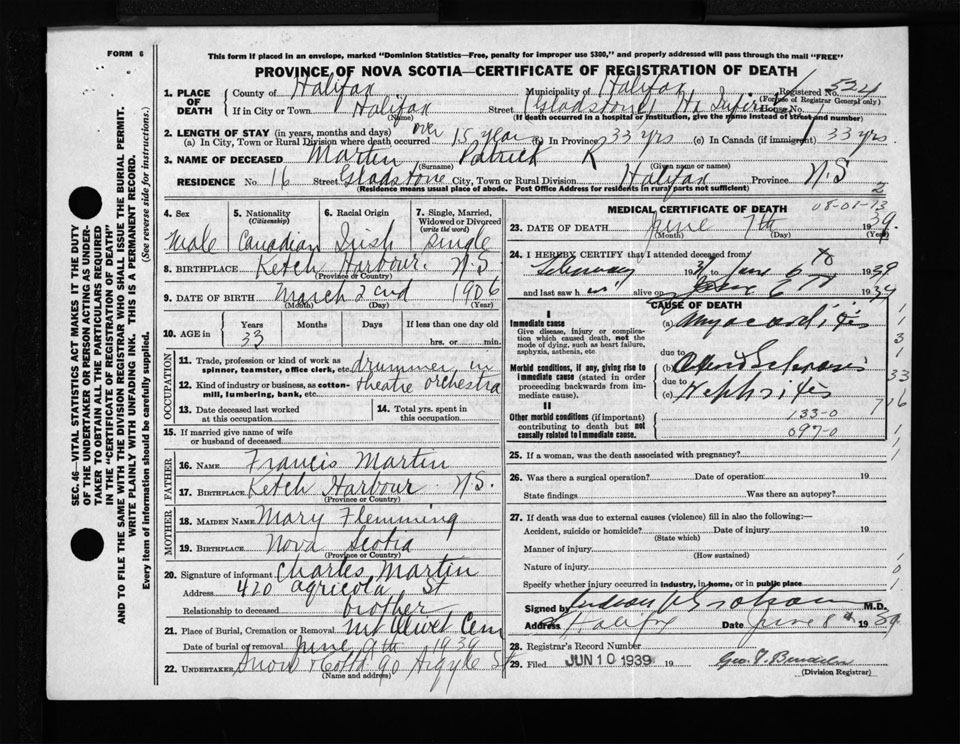 FORM 6
This form if placed in an envelope, marked "Dominion Statistics—Free, penalty for improper use $300," and properly addressed will pass through the mail "FREE"
PROVINCE OF NOVA SCOTIA—CERTIFICATE OF REGISTRATION OF DEATH
SEC. 46—VITAL STATISTICS ACT MAKES IT THE DUTY
OF THE UNDERTAKER OR PERSON ACTING AS UNDER-
TAKER TO OBTAIN ALL THE PARTICULARS REQUIRED
IN THE "CERTIFICATE OF REGISTRATION OF DEATH"
AND TO FILE THE SAME WITH THE DIVISION REGISTRAR WHO SHALL ISSUE THE BURIAL PERMIT.
WRITE PLAINLY WITH UNFADING INK. THIS IS A PERMANENT RECORD.
Every item of information should be carefully supplied. (See reverse side for instructions.)
1. PLACE OF DEATH
County of Halifax Municipality of Halifax Registered No. 524
(For use of Registrar General only)
If in City or Town Halifax Street (Gladstone) House No.
(Name) (If death occurred in a hospital or institution, give the name instead of street and number)
2. LENGTH OF STAY (in years, months and days)
(a) In City, Town or Rural Division where death occurred over 15 years (b) In Province 33 yrs (c) In Canada (if immigrant) 33 yrs
3. NAME OF DECEASED Martin Patrick K
(Surname) (Given name or names)
RESIDENCE No. 16 Street Gladstone City, Town or Rural Division Halifax Province N.S
(Residence means usual place of abode. Post Office Address for residents in rural parts not sufficient)
2
4. Sex Male
5. Nationality (Citizenship) Canadian
6. Racial Origin Irish
7. Single, Married, Widowed or Divorced (write the word) Single
8. BIRTHPLACE Ketch Harbour. N.S
(Province or Country)
9. DATE OF BIRTH March 2nd 1906
(Month) (Day) (Year)
10. AGE in Years 33 Months Days If less than one day old hrs. or min.
OCCUPATION
11. Trade, profession or kind of work as spinner, teamster, office clerk, etc. drummer in
12. Kind of industry or business, as cotton-mill, lumbering, bank, etc. theatre orchestra
13. Date deceased last worked at this occupation
14. Total yrs. spent in this occupation
15. If married give name of wife or husband of deceased
FATHER
16. NAME Francis Martin
17. BIRTHPLACE Ketch Harbour N.S.
(Province or Country)
MOTHER
18. MAIDEN NAME Mary Flemming
19. BIRTHPLACE Nova Scotia
(Province or Country)
20. Signature of informant Charles Martin
Address 420 Agricola St
Relationship to deceased brother
21. Place of Burial, Cremation or Removal Mt Olivet Cem
Date of burial or removal June 9th 1939
22. UNDERTAKER Snow & Co Ltd 90 Argyle St
(Name and address)
MEDICAL CERTIFICATE OF DEATH
23. DATE OF DEATH June 7th 1939.
(Month) (Day) (Year)
24. I HEREBY CERTIFY that I attended deceased from
to June 6 1939
and last saw h alive on June 6 1939
CAUSE OF DEATH
I
Immediate cause
Give disease, injury or complication which caused death, not the mode of dying, such as heart failure, asphyxia, asthenia, etc
(a) Myocarditis
due to
Morbid conditions, if any, giving rise to immediate cause (stated in order proceeding backwards from immediate cause)
(b)
due to
(c) Nephritis
II
Other morbid conditions (if important) contributing to death but not causally related to immediate cause.
133-0
097-0
1
3
1
33
25. If a woman, was the death associated with pregnancy?
26. Was there a surgical operation? Date of operation 19
State findings Was there an autopsy?
27. If death was due to external causes (violence) fill in also the following:—
Accident, suicide or homicide? Date of injury 19
(State which)
Manner of injury
(How sustained)
Nature of injury
Specify whether injury occurred in industry, in home, or in public place
Signed by M.D.
Address Halifax Date June 8 1939
28. Registrar's Record Number
29. Filed JUN 10 1939 19
(Division Registrar)